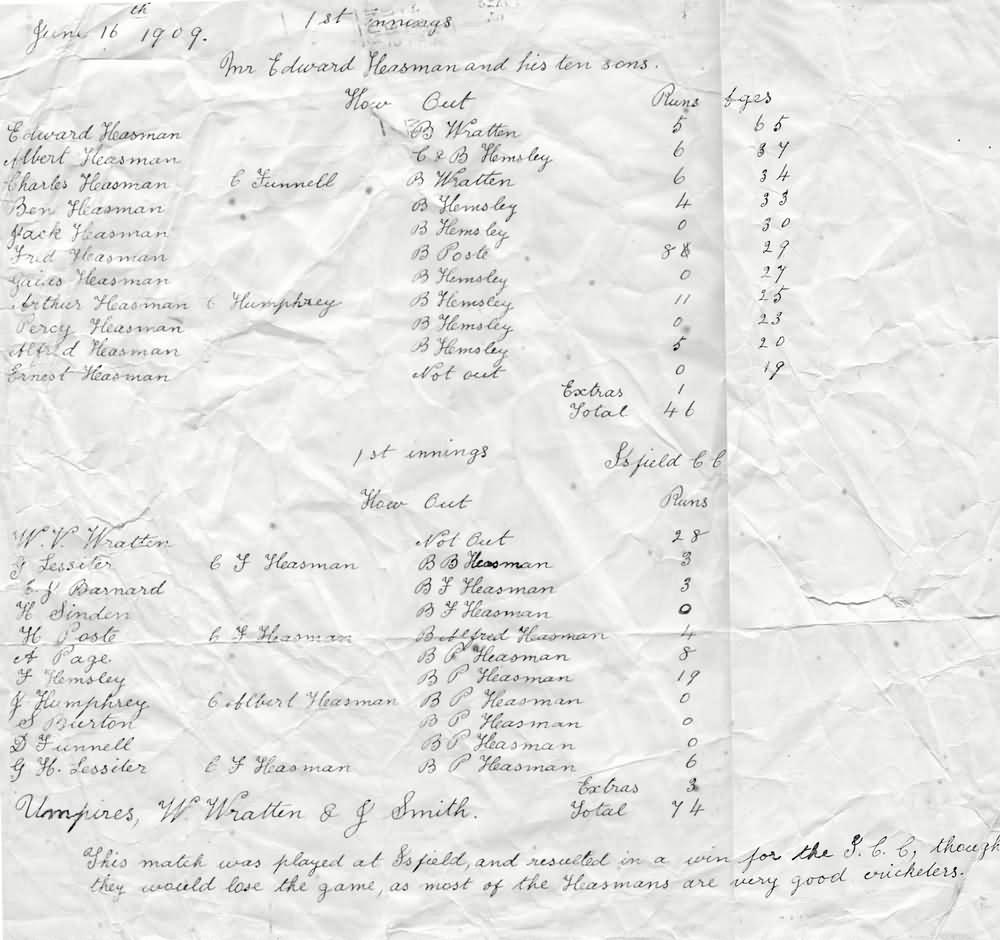 June 16th 1909. 1st innings
Mr Edward Heasman and his ten sons.
How Out Runs Ages
Edward Heasman B Wratten 5 65
Albert Heasman C & B Hemsley 6 37
Charles Heasman C Funnell B Wratten 6 34
Ben Heasman B Hemsley 4 33
Jack Heasman B Hemsley 0 30
Fred Heasman B Poste 8 29
Gaius Heasman B Hemsley 0 27
Arthur Heasman C Humphrey B Hemsley 11 25
Percy Heasman B Hemsley 0 23
Alfred Heasman B Hemsley 5 20
Ernest Heasman Not out 0 19
Extras 1
Total 46
1st innings Isfield C C
How Out Runs
W. V. Wratten Not Out 28
G Lessiter C F Heasman B B Heasman 3
E J Barnard B F Heasman 3
H Sinden B F Heasman 0
H Poste C F Heasman B Alfred Heasman 4
A Page B P Heasman 8
F Hemsley B P Heasman 19
J Humphrey C Albert Heasman B P Heasman 0
S Burton B P Heasman 0
D Funnell B P Heasman 0
G H. Lessiter C F Heasman B P Heasman 6
Extras 3
Umpires, W Wratten & J Smith. Total 74
This match was played at Isfield, and resulted in a win for the I. C. C, though
they would lose the game, as most of the Heasmans are very good cricketers.